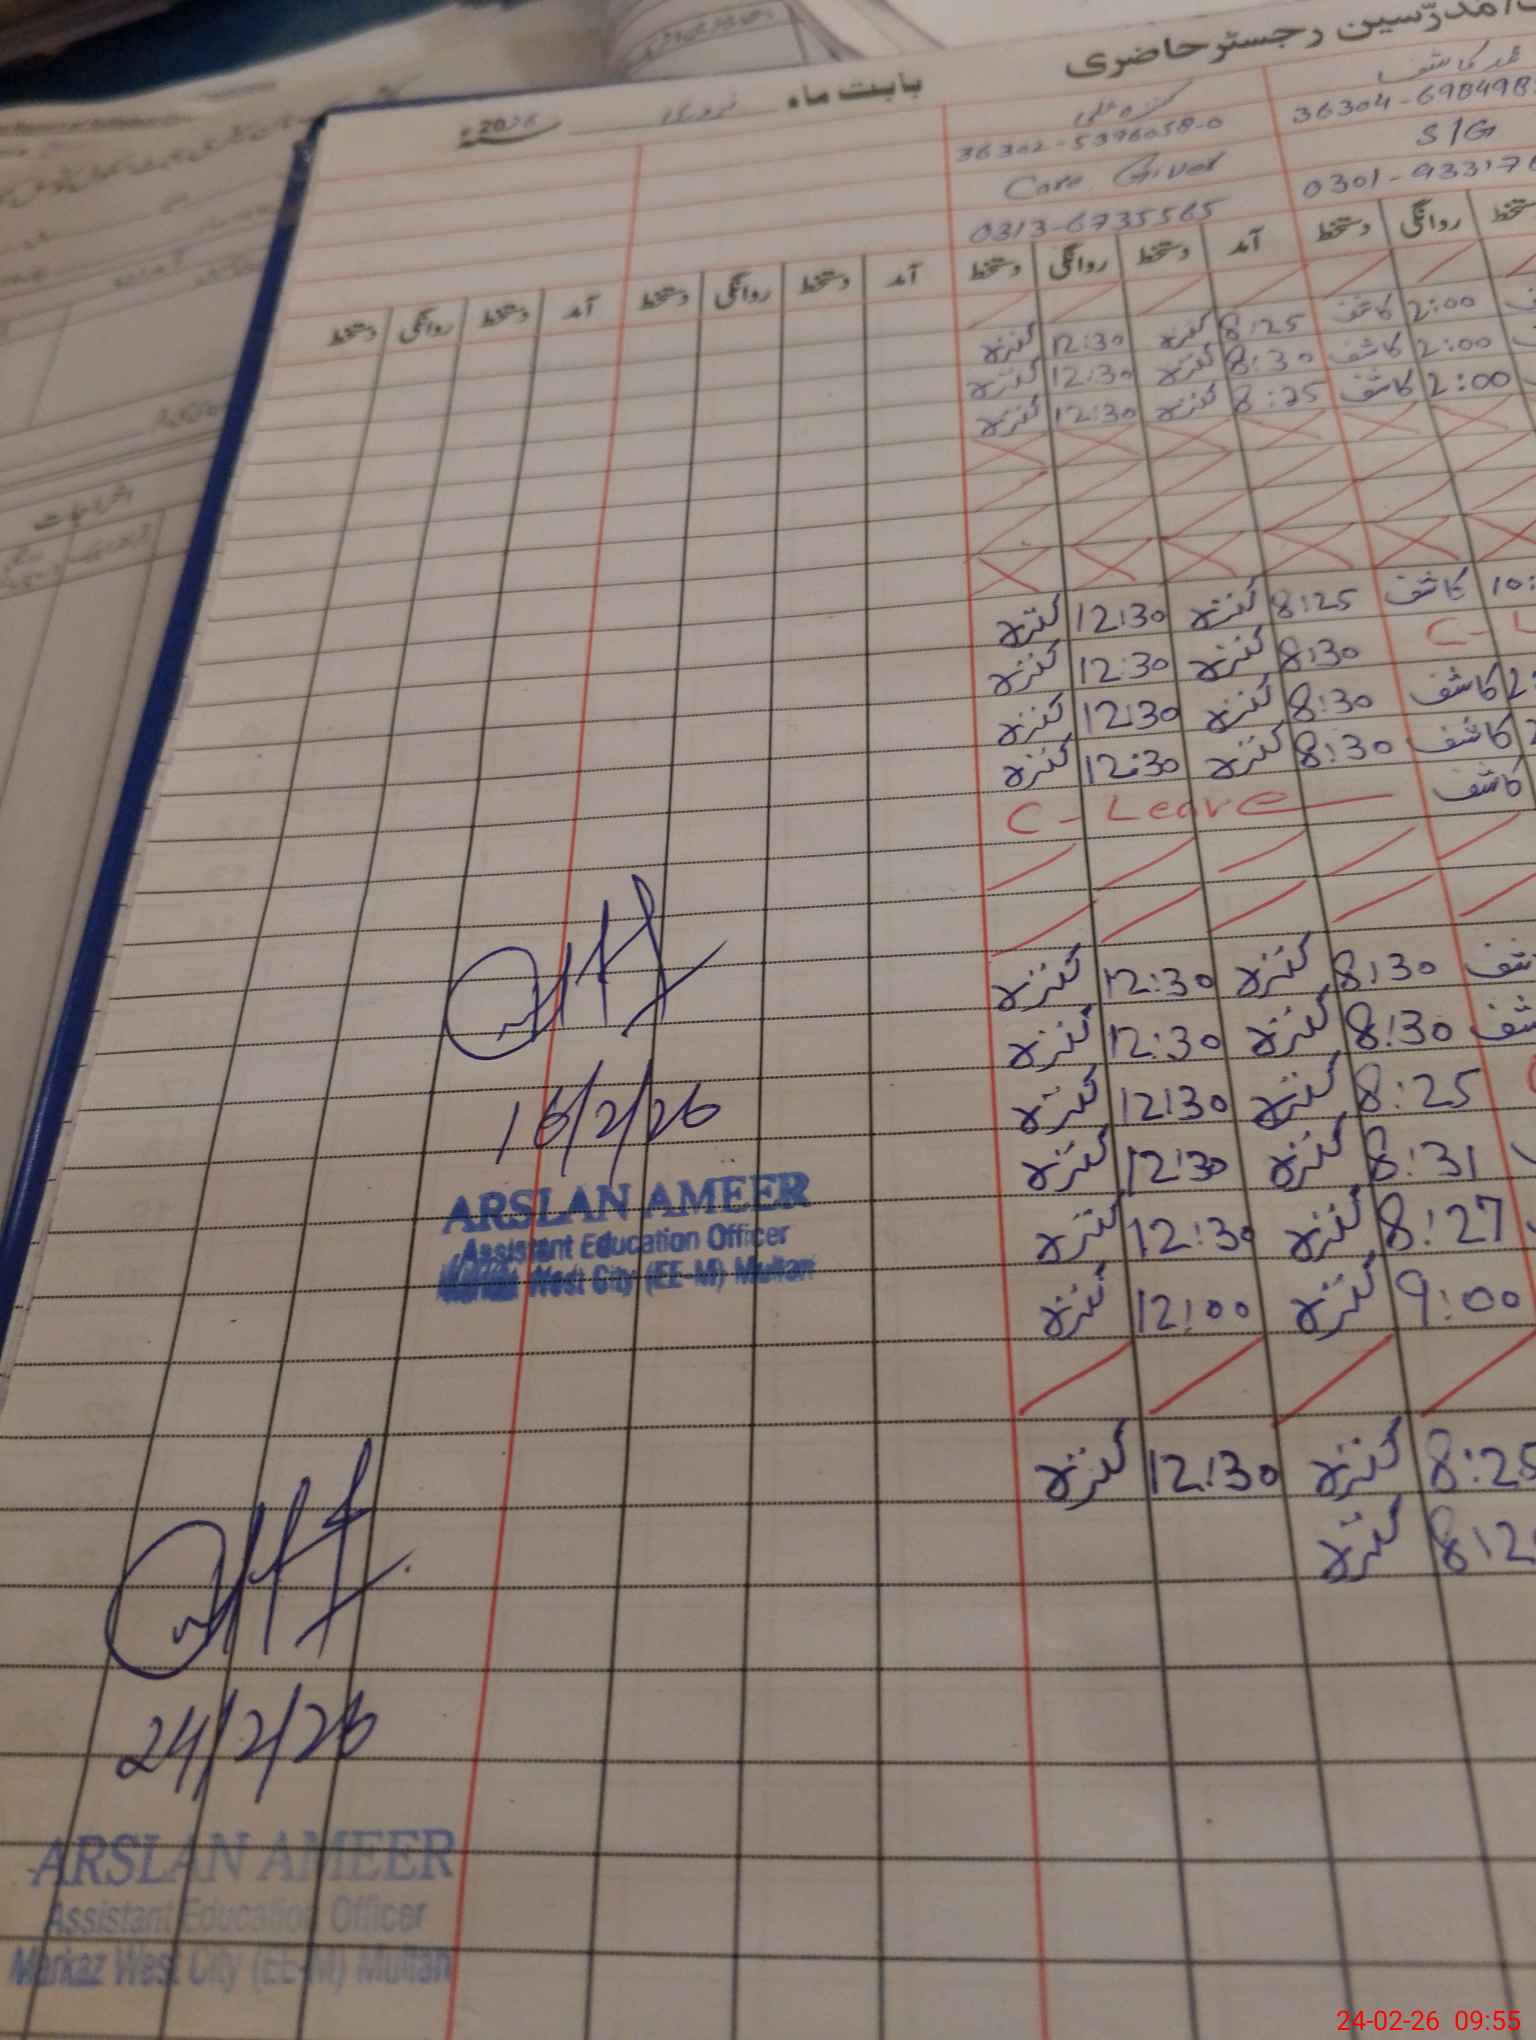 مدرّسین رجسٹر حاضری
بابت ماہ فروری 2026ء
کنزہ علی
36302-5396058-0
Care Giver
0313-6735565
36304-69849
S/G
0301-93317
دستخط روانگی دستخط آمد دستخط روانگی دستخط آمد دستخط روانگی دستخط آمد دستخط روانگی دستخط
کنزہ 12:30 کنزہ 8:25 کاشف 2:00
کنزہ 12:30 کنزہ 8:30 کاشف 2:00
کنزہ 12:30 کنزہ 8:25 کاشف 2:00
کنزہ 12:30 کنزہ 8:25 کاشف 10:
کنزہ 12:30 کنزہ 8:30 C-L
کنزہ 12:30 کنزہ 8:30 کاشف 2:
کنزہ 12:30 کنزہ 8:30 کاشف 2
C-Leave کاشف
کنزہ 12:30 کنزہ 8:30
کنزہ 12:30 کنزہ 8:30
کنزہ 12:30 کنزہ 8:25
کنزہ 12:30 کنزہ 8:31
کنزہ 12:30 کنزہ 8:27
کنزہ 12:00 کنزہ 9:00
کنزہ 12:30 کنزہ 8:25
کنزہ 8:2
16/2/26
ARSLAN AMEER
Assistant Education Officer
Markaz West City (EE-M) Multan
24/2/26
ARSLAN AMEER
Assistant Education Officer
Markaz West City (EE-M) Multan
24-02-26 09:55